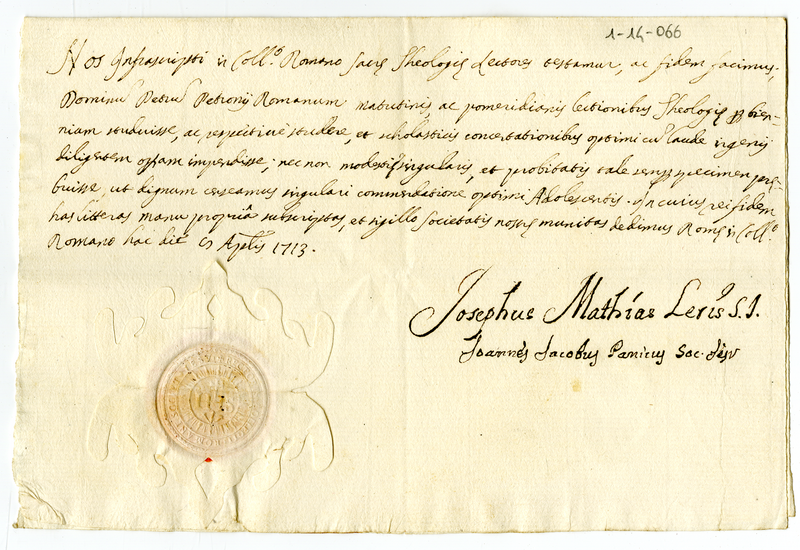 1-14-066
Nos Infrascripti in Coll.º Romano Sacrę Theologię Lectores testamur, ac fidem facimus,
Dominũ Petrũ Petronij Romanum matutinis ac pomeridianis lectionibus Theologię per bien-
nium studuisse, ac respectivè studere, et scholasticis concertationibus optimi cũ laude ingenij
diligentem operam impendisse; nec non modestię singularis, et probitatis tale semper specimen prę-
buisse, ut dignum censeamus singulari commendatione optimi Adolescentis. In cuius rei fidem
has litteras manu propriâ subscriptas, et sigillo Societatis nostrę munitas dedimus Romę in Coll.º
Romano hac die 9 Aprlis 1713.
Josephus Mathias S.J.
Joannes Jacobus Panicus Soc. Jesv